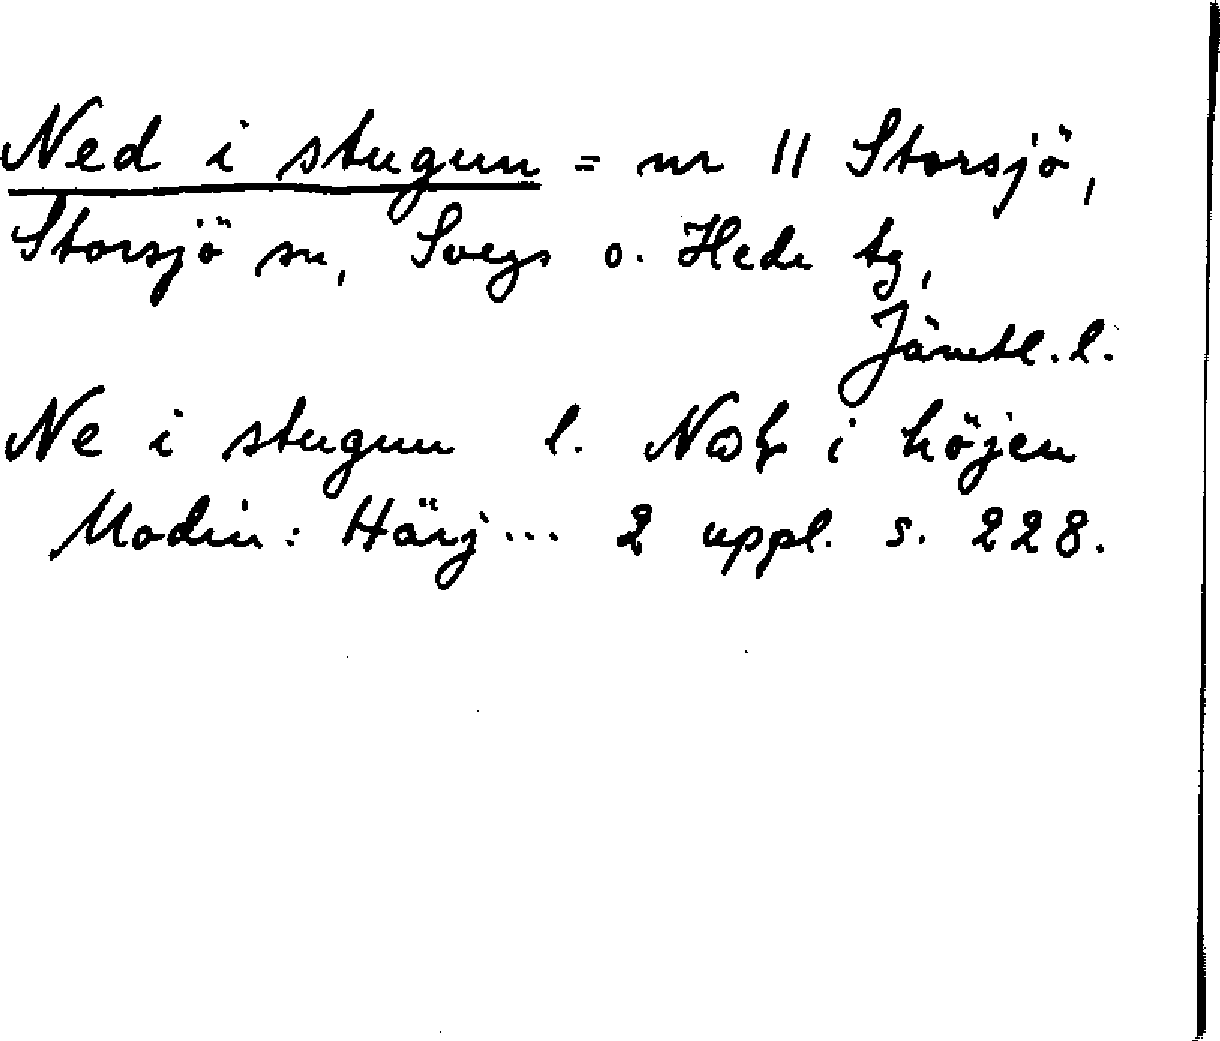 Ned i stugun = nr 11 Storsjö,
Storsjö sn, Svegs o. Hede tg,
Jämtl. l.
Ne i stugun l. i höjen
Modin: Härj... 2 uppl. s. 228.